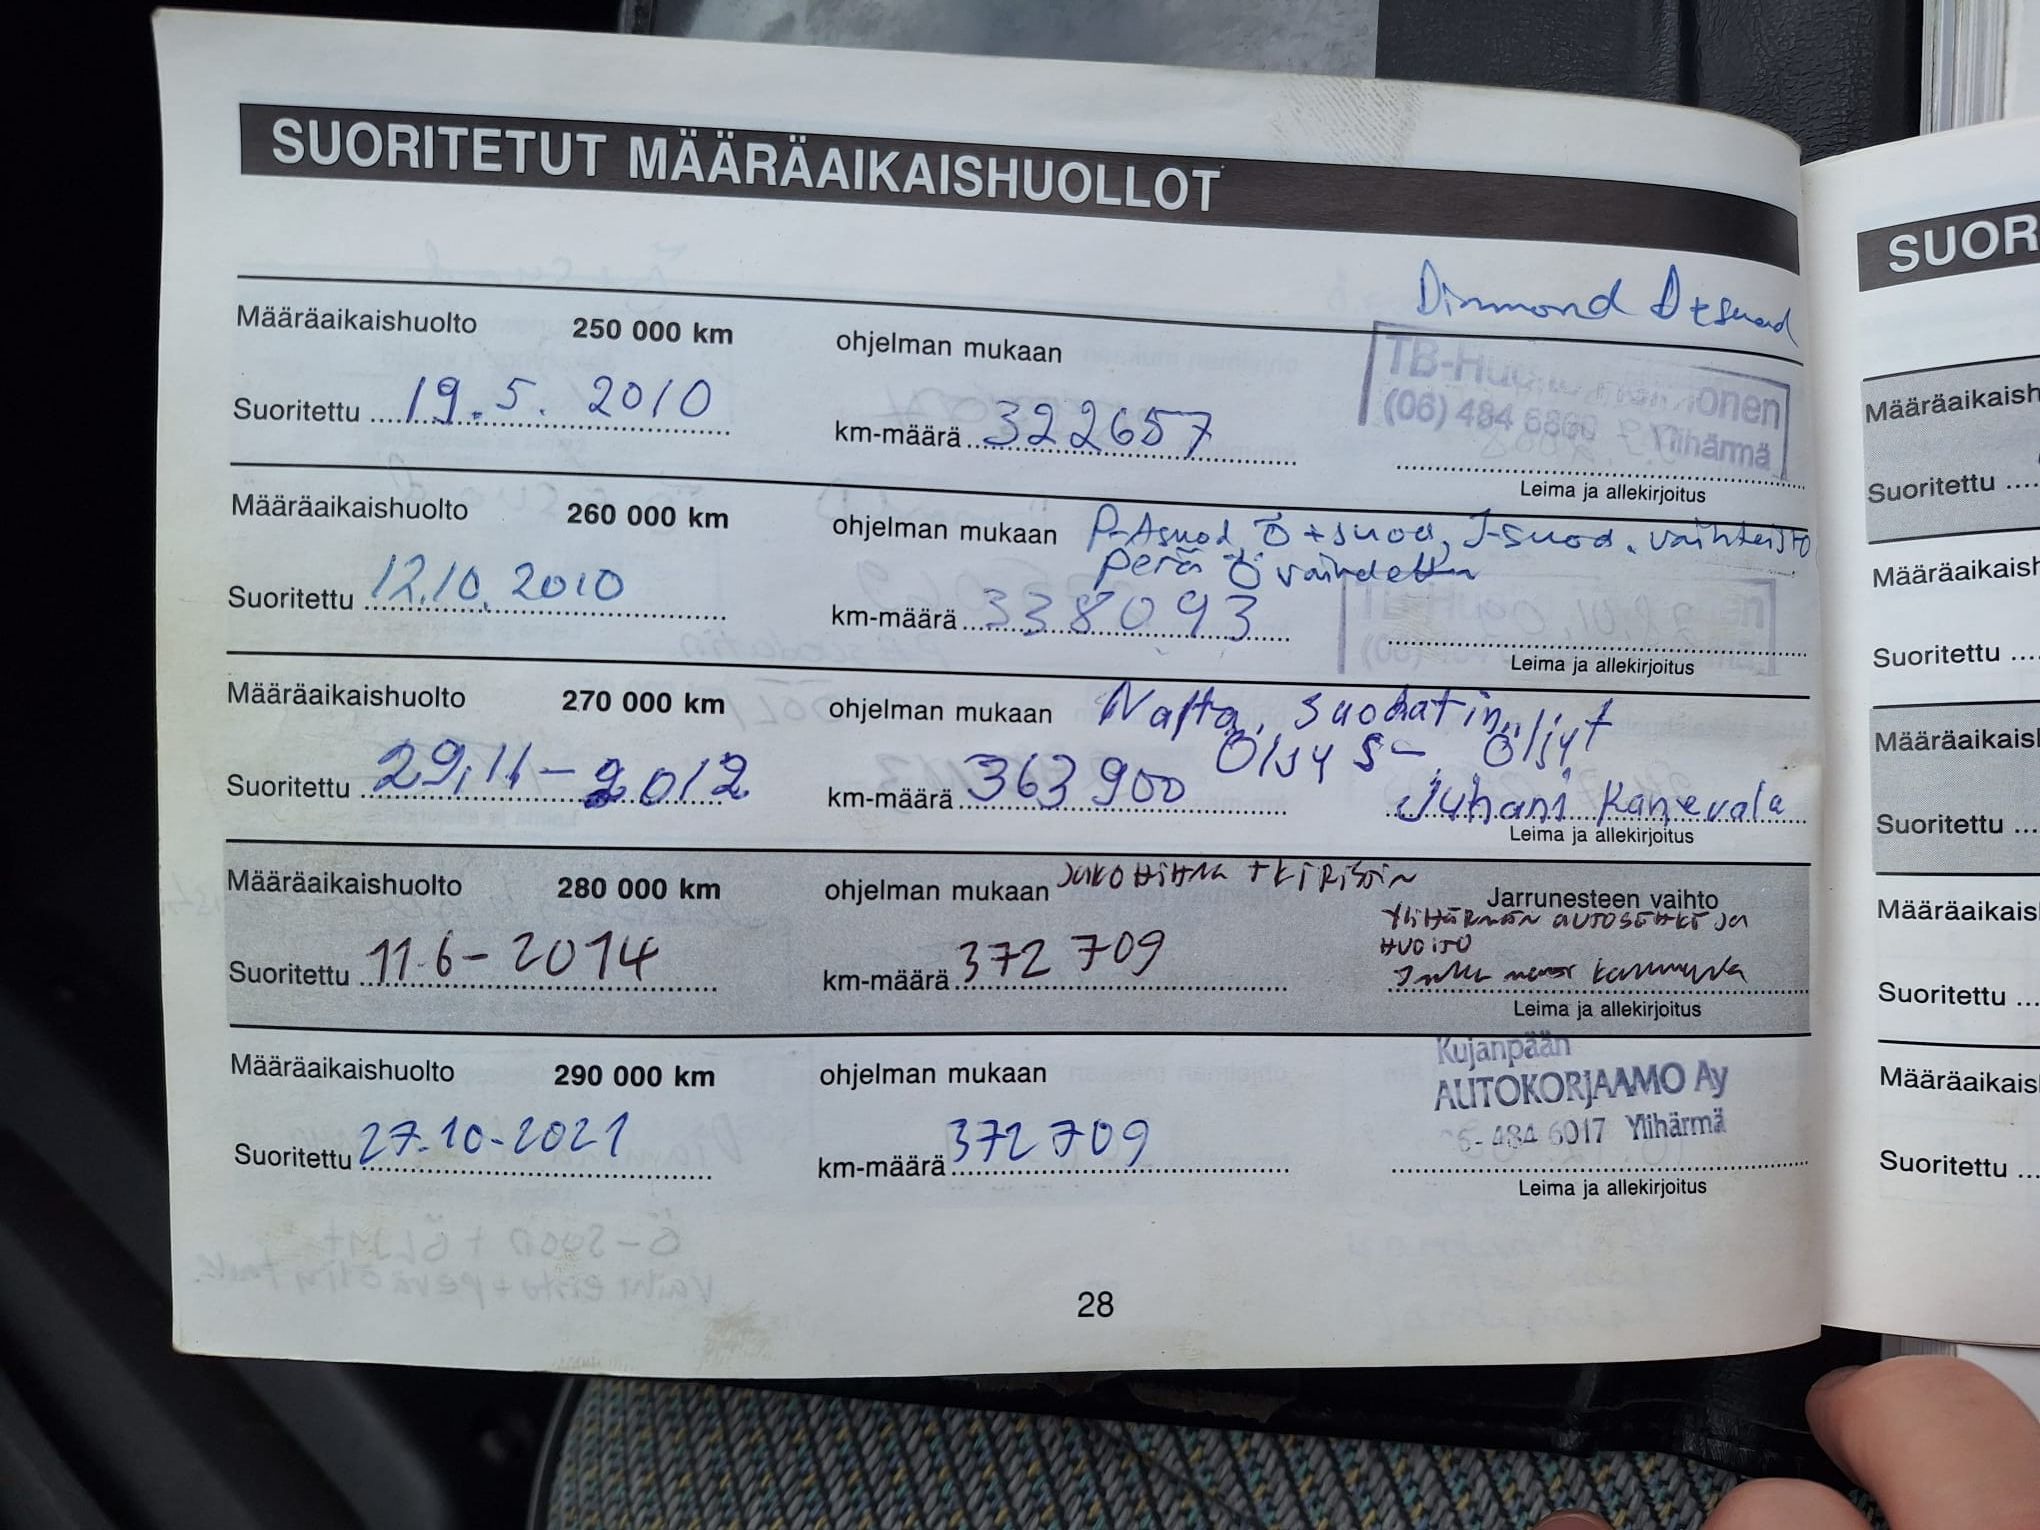 SUORITETUT MÄÄRÄAIKAISHUOLLOT
Määräaikaishuolto 250 000 km ohjelman mukaan
Suoritettu 19.5. 2010 km-määrä 322657
TB-Huo
(06) 484 6800 Ylihärmä
Leima ja allekirjoitus
Määräaikaishuolto 260 000 km ohjelman mukaan P-Asuod, Ö+suod, I-suod. vaihteisto
perä Ö vaihdettu
Suoritettu 12.10. 2010 km-määrä 338093
Leima ja allekirjoitus
Määräaikaishuolto 270 000 km ohjelman mukaan Nafta, suodatin,
Öljy s-, öljyt
Suoritettu 29.11-2012 km-määrä 363900 Juhani
Leima ja allekirjoitus
Määräaikaishuolto 280 000 km ohjelman mukaan JAKO HIHNA + KIRISTIN
Jarrunesteen vaihto
YLIHÄRMÄN AUTOSÄHKÖ JA
HUOLTO
Suoritettu 11.6-2014 km-määrä 372 709
Leima ja allekirjoitus
Määräaikaishuolto 290 000 km ohjelman mukaan
Kujanpään
AUTOKORJAAMO Ay
484 6017 Ylihärmä
Suoritettu 27.10-2021 km-määrä 372 709
Leima ja allekirjoitus
28
SUOR
Määräaikaish
Suoritettu
Määräaikaish
Suoritettu
Määräaikais
Suoritettu
Määräaikais
Suoritettu
Määräaikais
Suoritettu